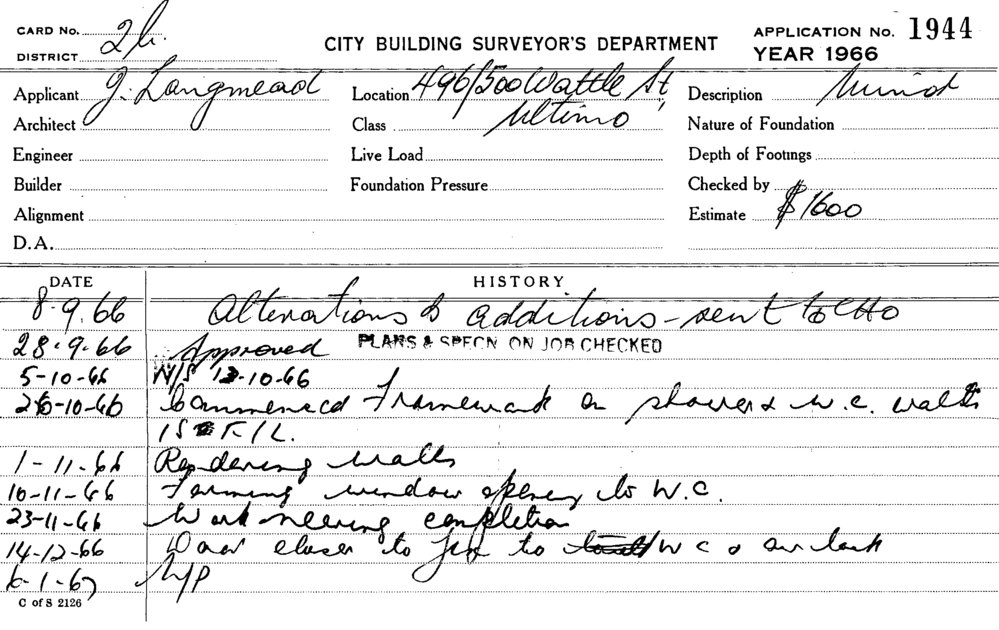 CARD No. 2h.
DISTRICT
CITY BUILDING SURVEYOR'S DEPARTMENT
APPLICATION No. 1944
YEAR 1966
Applicant J. Langmead
Location 496/500 Wattle St,
Description
Architect
Class Ultimo
Nature of Foundation
Engineer
Live Load
Depth of Footings
Builder
Foundation Pressure
Checked by
Alignment
Estimate $1600
D.A.
DATE
HISTORY
8.9.66 Alterations & additions - sent to CHO
28.9.66 Approved PLANS & SPECN ON JOB CHECKED
5-10-66 N/S 12-10-66
26-10-66 Commenced framework on shower & W.C. walls
1S F/L.
1-11-66 Rendering walls
10-11-66 Forming window opening to W.C.
23-11-66 Work neering completion
14-12-66 Door closer to fix to W C & air lock
6-1-67
C of S 2126